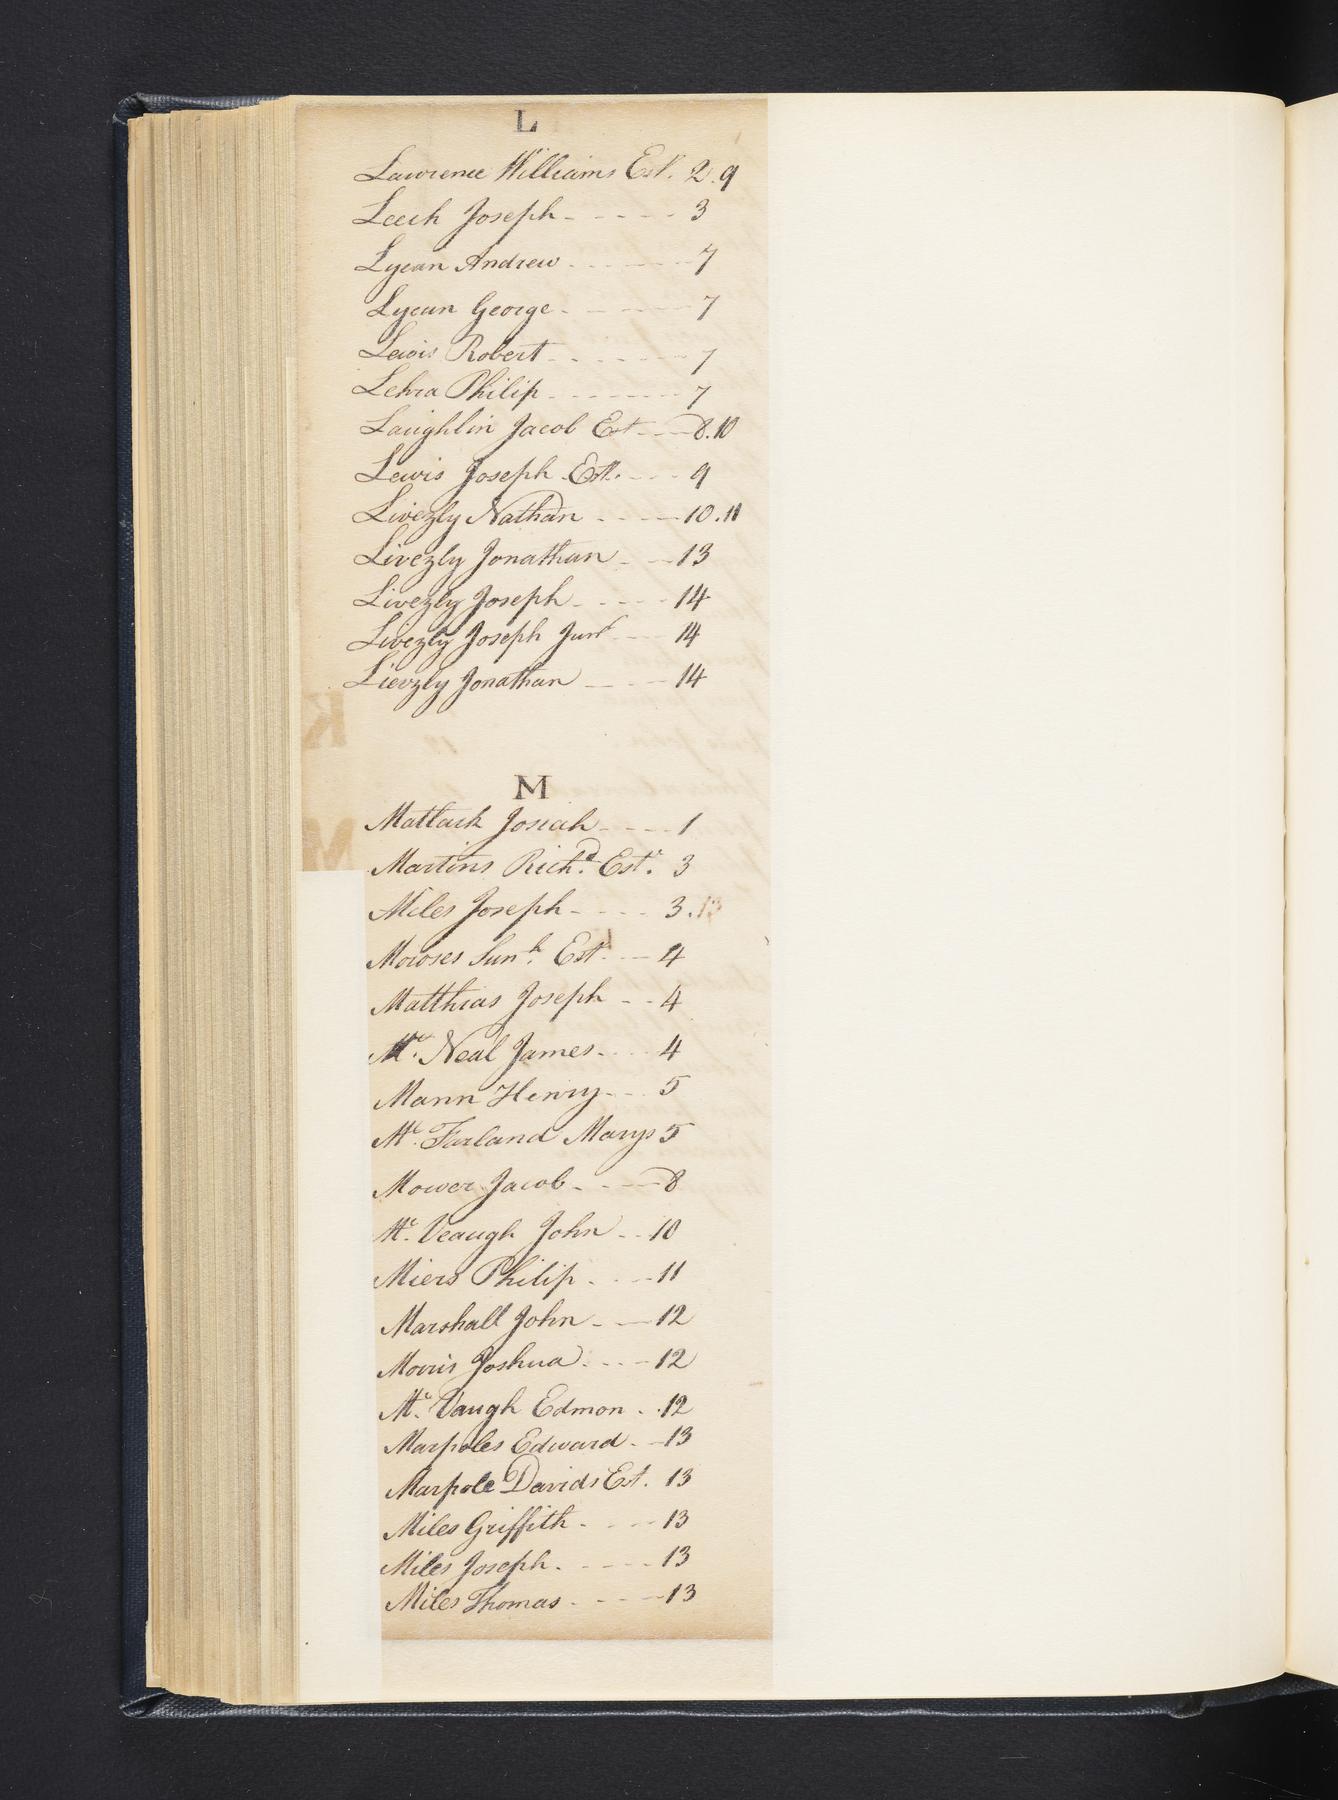 L
Lawrence Williams Est. 2.9
Leech Joseph - - - - - 3
Lycan Andrew - - - - - 7
Lycan George - - - - - 7
Lewis Robert - - - - - 7
Lehra Philip - - - - - 7
Laughlin Jacob Est - - 8.10
Lewis Joseph Est. - - - 9
Livezly Nathan - - - - 10.11
Livezly Jonathan - - 13
Livezly Joseph - - - - 14
Livezly Joseph Junr - - 14
Lievzly Jonathan - - - 14
K
M
M
Matlack Josiah - - - - 1
Martins Richd. Est. 3
Miles Joseph - - - - 3.13
Est. - - 4
Matthias Joseph - - 4
Mc. Neal James - - - 4
Mann Henry - - - 5
Mc. Farland Marys 5
Mower Jacob - - - - 8
Mc. Veaugh John - - 10
Miers Philip - - - - 11
Marshall John - - - 12
Morris Joshua - - - - 12
Mc. Vaugh Edmon - - 12
Marpoles Edward - - 13
Marpole Davids Est. 13
Miles Griffith - - - - 13
Miles Joseph - - - - - 13
Miles Thomas - - - - - 13